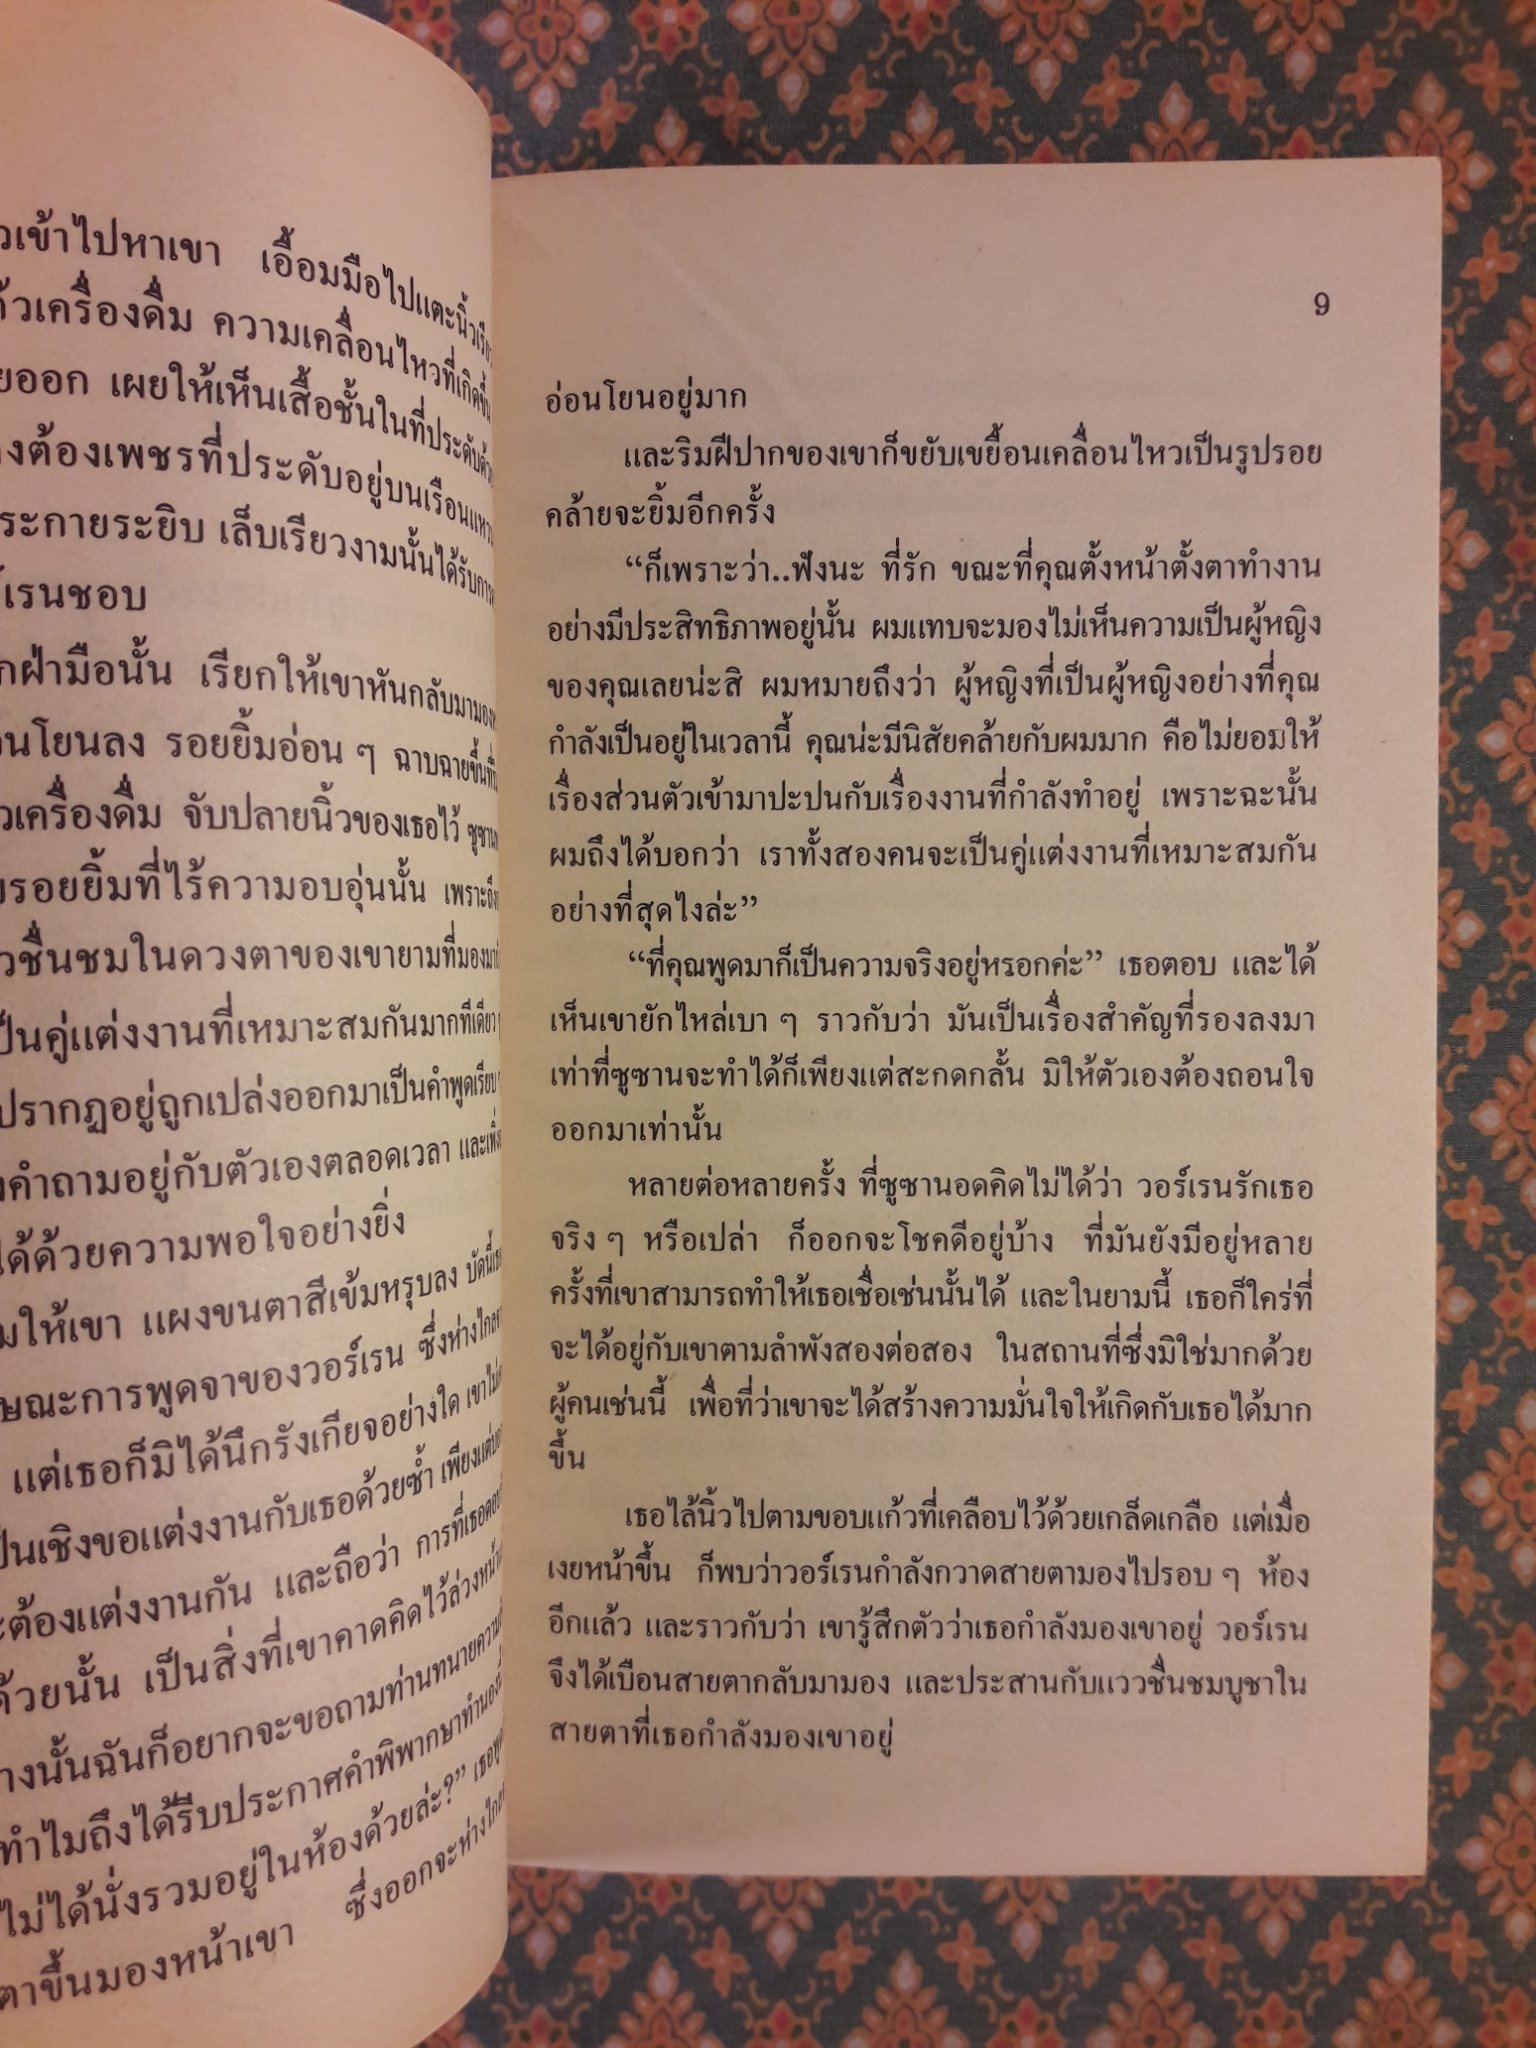 วเข้าไปหาเขา เอื้อมมือไปแตะนิ้วเรีย
ก้วเครื่องดื่ม ความเคลื่อนไหวที่เกิดขึ้น
ยออก เผยให้เห็นเสื้อชั้นในที่ประดับด้วย
งต้องเพชรที่ประดับอยู่บนเรือนแหวน
ระกายระยิบ เล็บเรียวงามนั้นได้รับการ
์เรนชอบ
กฝ่ามือนั้น เรียกให้เขาหันกลับมามอง
นโยนลง รอยยิ้มอ่อน ๆ ฉาบฉายขึ้นที่
วเครื่องดื่ม จับปลายนิ้วของเธอไว้ ซูซาน
บรอยยิ้มที่ไร้ความอบอุ่นนั้น เพราะถึง
วชื่นชมในดวงตาของเขายามที่มองมา
ป็นคู่แต่งงานที่เหมาะสมกันมากทีเดียว
ปรากฏอยู่ถูกเปล่งออกมาเป็นคำพูดเรียบ
งคำถามอยู่กับตัวเองตลอดเวลา และเพิ่ง
ได้ด้วยความพอใจอย่างยิ่ง
มให้เขา แผงขนตาสีเข้มหรุบลง บัดนี้เธอ
ษณะการพูดจาของวอร์เรน ซึ่งห่างไกล
แต่เธอก็มิได้นึกรังเกียจอย่างใด เขาไม่
ป็นเชิงขอแต่งงานกับเธอด้วยซ้ำ เพียงแต่บอก
ะต้องแต่งงานกัน และถือว่า การที่เธอตอบ
ด้วยนั้น เป็นสิ่งที่เขาคาดคิดไว้ล่วงหน้า
างนั้นฉันก็อยากจะขอถามท่านทนายความ
ทำไมถึงได้รีบประกาศคำพิพากษาทำนอง
ไม่ได้นั่งรวมอยู่ในห้องด้วยล่ะ?” เธอ
ตาขึ้นมองหน้าเขา ซึ่งออกจะห่างไกล
9
อ่อนโยนอยู่มาก
และริมฝีปากของเขาก็ขยับเขยื้อนเคลื่อนไหวเป็นรูปรอย
คล้ายจะยิ้มอีกครั้ง
“ก็เพราะว่า..ฟังนะ ที่รัก ขณะที่คุณตั้งหน้าตั้งตาทำงาน
อย่างมีประสิทธิภาพอยู่นั้น ผมแทบจะมองไม่เห็นความเป็นผู้หญิง
ของคุณเลยน่ะสิ ผมหมายถึงว่า ผู้หญิงที่เป็นผู้หญิงอย่างที่คุณ
กำลังเป็นอยู่ในเวลานี้ คุณน่ะมีนิสัยคล้ายกับผมมาก คือไม่ยอมให้
เรื่องส่วนตัวเข้ามาปะปนกับเรื่องงานที่กำลังทำอยู่ เพราะฉะนั้น
ผมถึงได้บอกว่า เราทั้งสองคนจะเป็นคู่แต่งงานที่เหมาะสมกัน
อย่างที่สุดไงล่ะ”
“ที่คุณพูดมาก็เป็นความจริงอยู่หรอกค่ะ” เธอตอบ และได้
เห็นเขายักไหล่เบา ๆ ราวกับว่า มันเป็นเรื่องสำคัญที่รองลงมา
เท่าที่ซูซานจะทำได้ก็เพียงแต่สะกดกลั้น มิให้ตัวเองต้องถอนใจ
ออกมาเท่านั้น
หลายต่อหลายครั้ง ที่ซูซานอดคิดไม่ได้ว่า วอร์เรนรักเธอ
จริง ๆ หรือเปล่า ก็ออกจะโชคดีอยู่บ้าง ที่มันยังมีอยู่หลาย
ครั้งที่เขาสามารถทำให้เธอเชื่อเช่นนั้นได้ และในยามนี้ เธอก็ใคร่ที่
จะได้อยู่กับเขาตามลำพังสองต่อสอง ในสถานที่ซึ่งมิใช่มากด้วย
ผู้คนเช่นนี้ เพื่อที่ว่าเขาจะได้สร้างความมั่นใจให้เกิดกับเธอได้มาก
ขึ้น
เธอไล้นิ้วไปตามขอบแก้วที่เคลือบไว้ด้วยเกล็ดเกลือ แต่เมื่อ
เงยหน้าขึ้น ก็พบว่าวอร์เรนกำลังกวาดสายตามองไปรอบ ๆ ห้อง
อีกแล้ว และราวกับว่า เขารู้สึกตัวว่าเธอกำลังมองเขาอยู่ วอร์เรน
จึงได้เบือนสายตากลับมามอง และประสานกับแววชื่นชมบูชาใน
สายตาที่เธอกำลังมองเขาอยู่